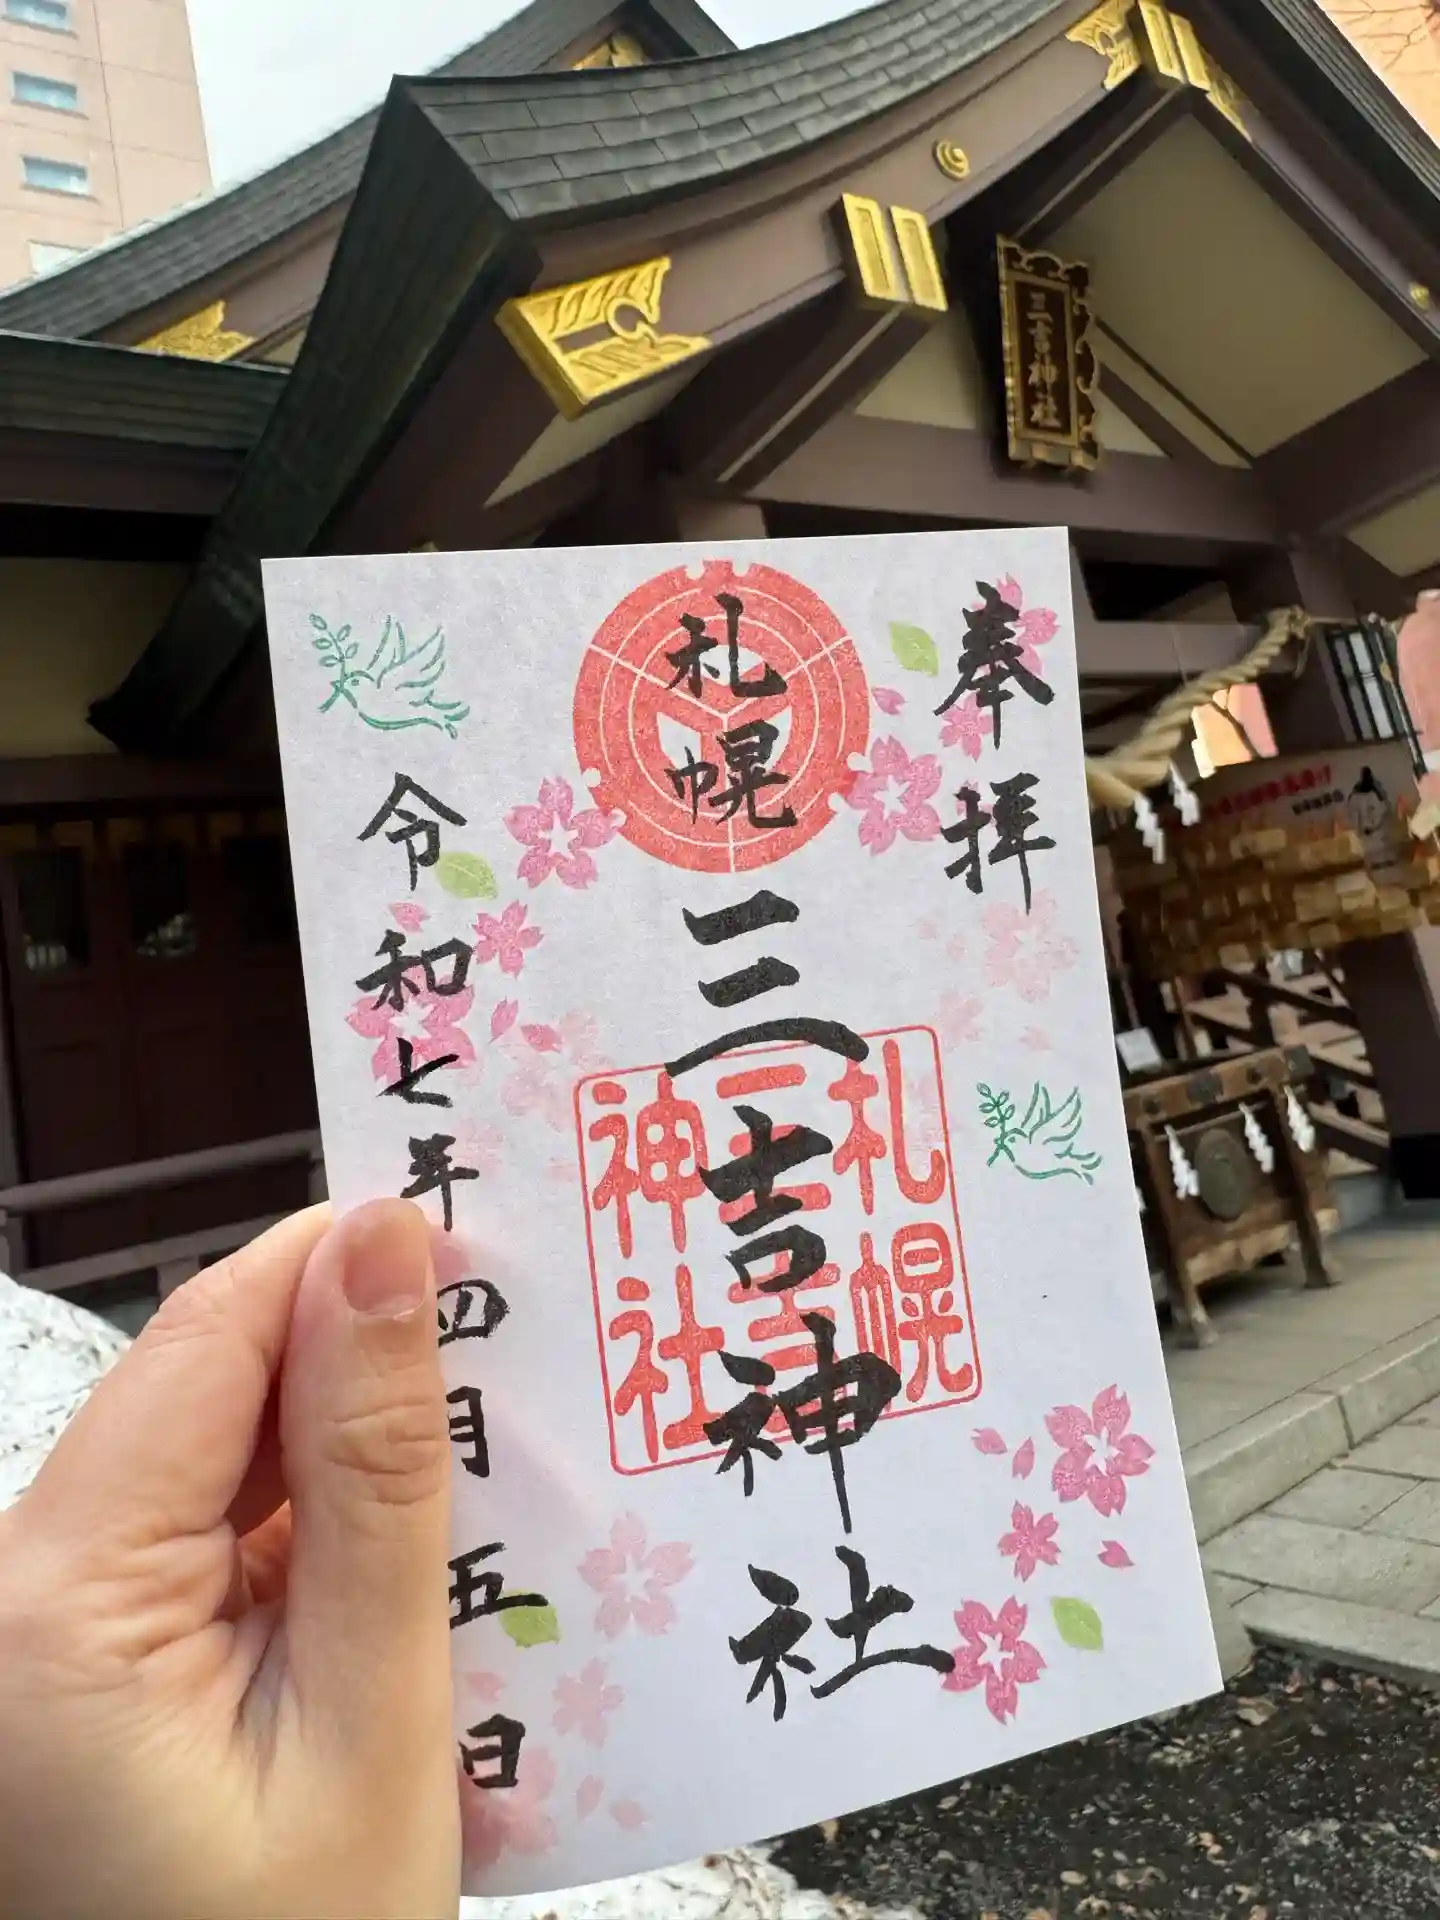 三吉神社
奉拝
札幌
三吉神社
札幌
三吉
神社
令和七年四月五日